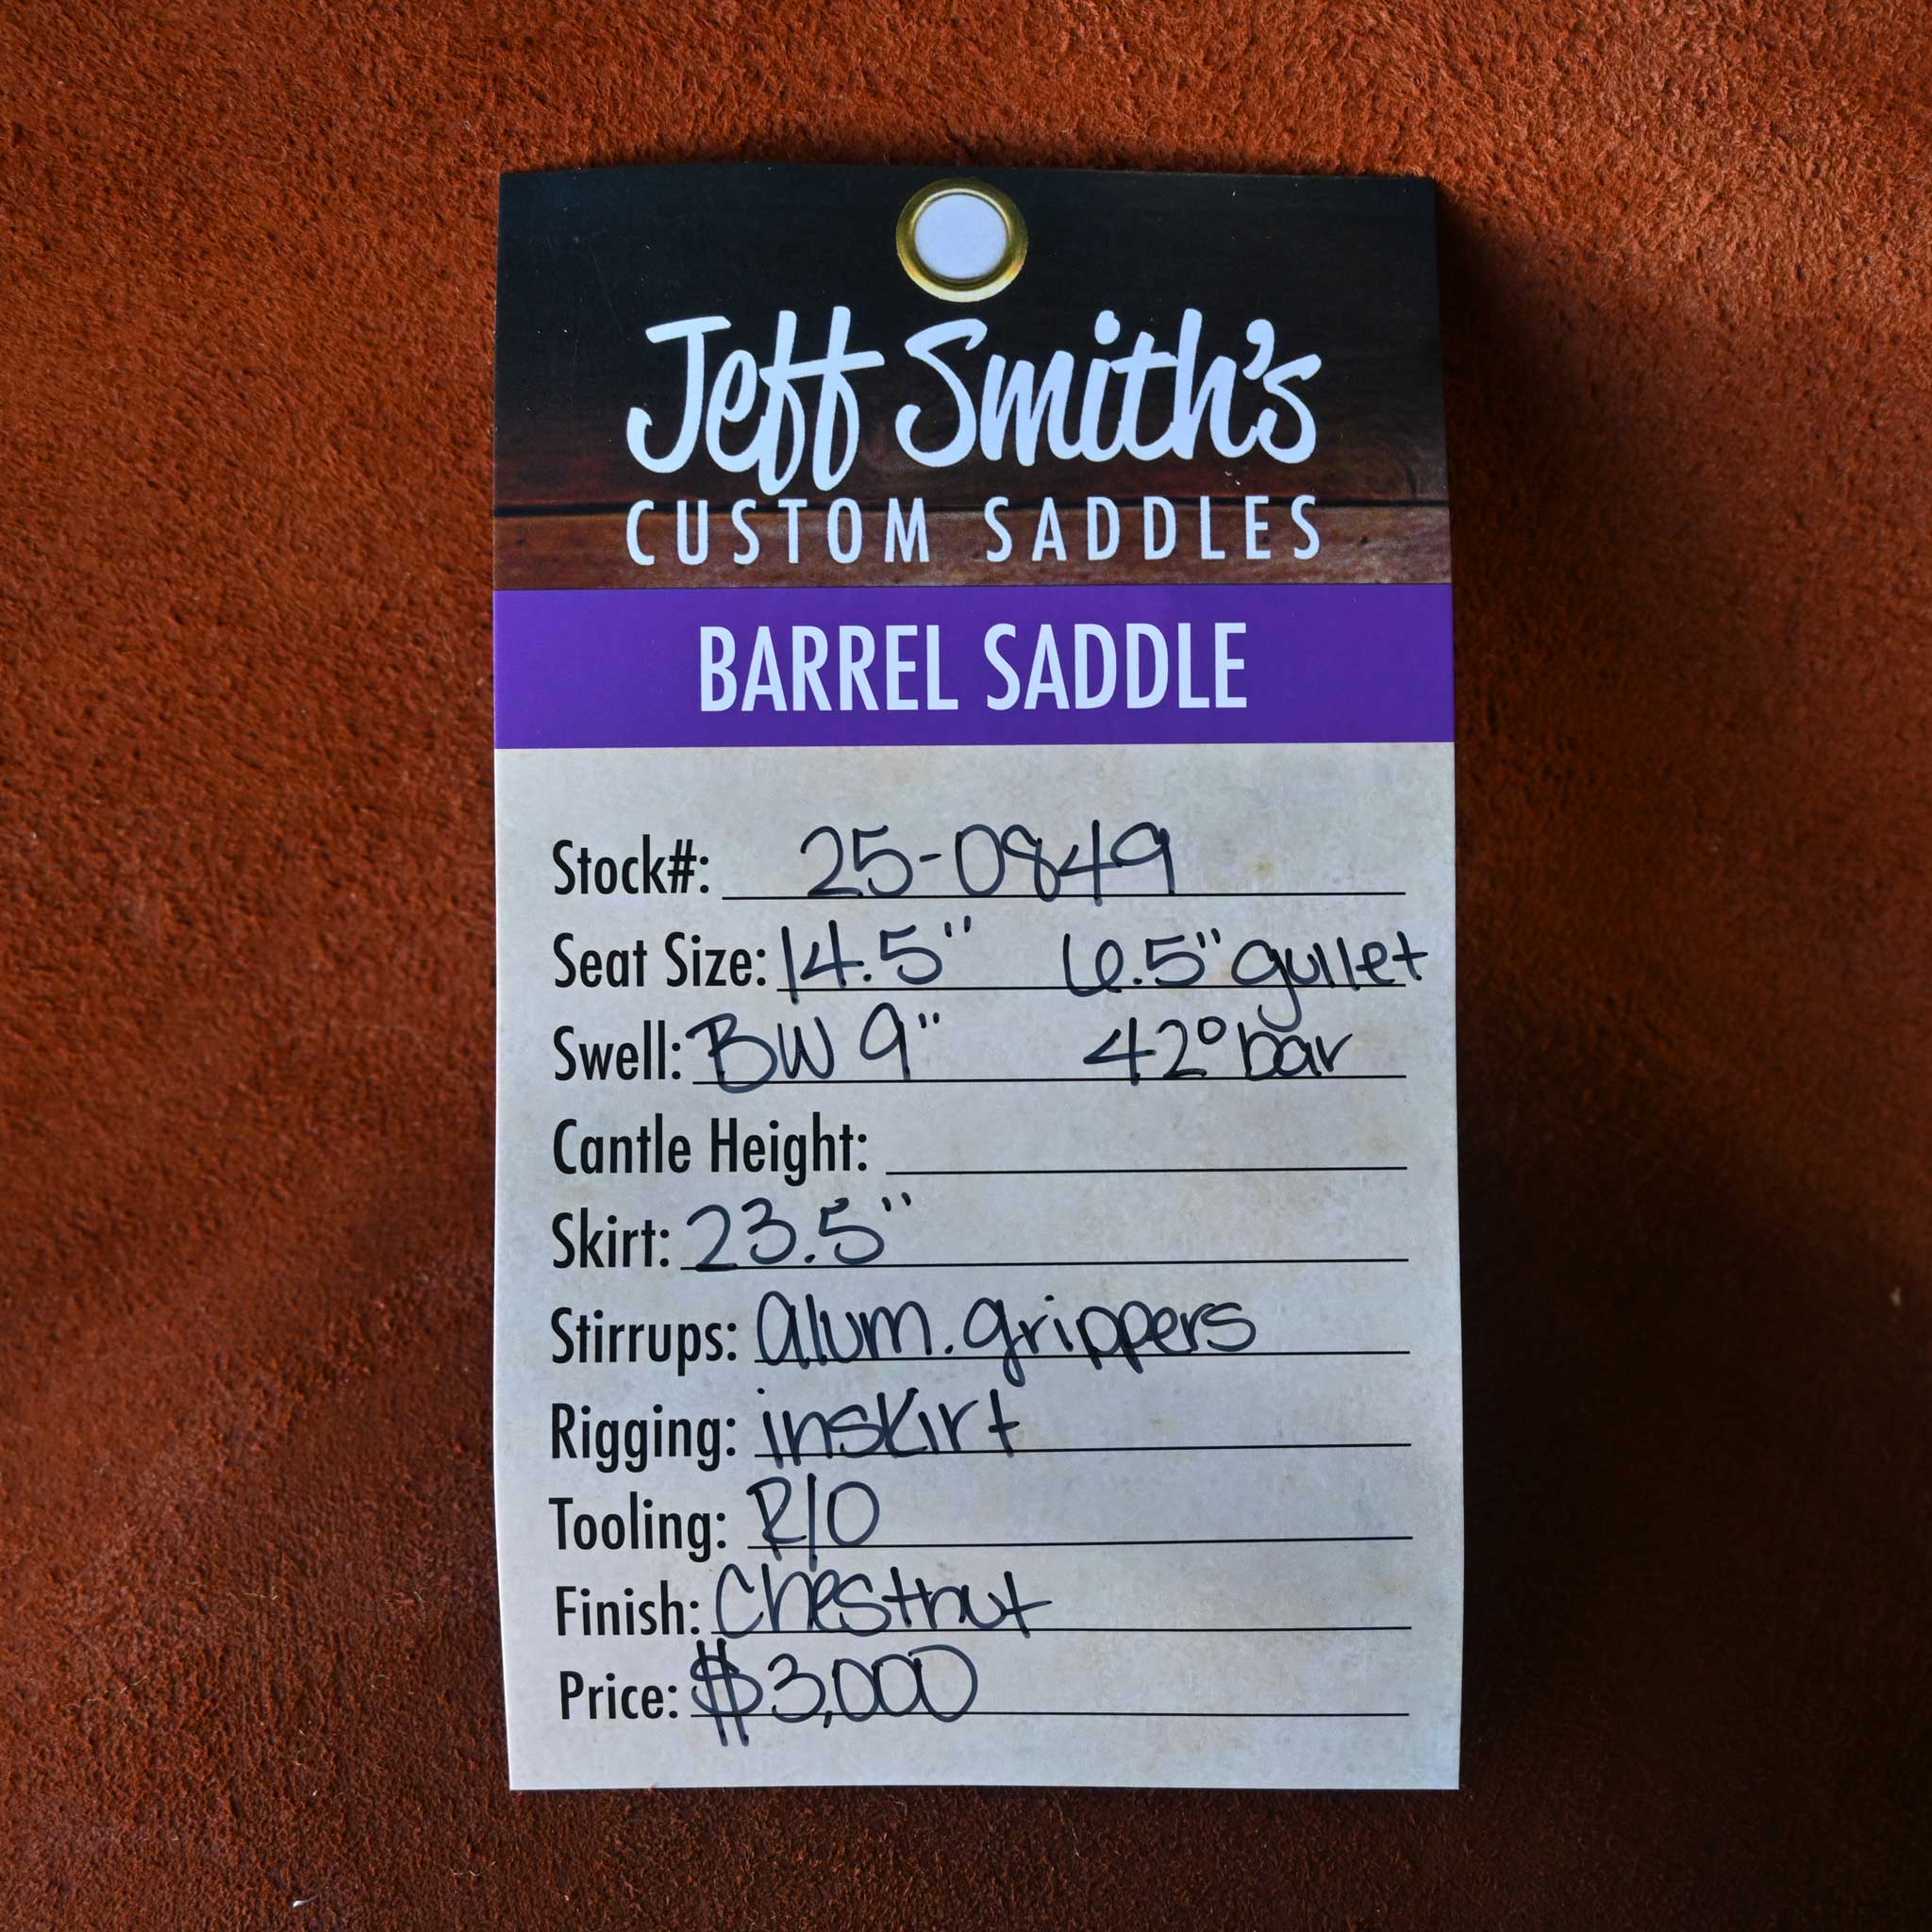 Jeff Smith's
CUSTOM SADDLES
BARREL SADDLE
Stock#: 25-0849
Seat Size: 14.5" 6.5" gullet
Swell: BW 9" 42° bar
Cantle Height:
Skirt: 23.5"
Stirrups: alum. grippers
Rigging: inskirt
Tooling: R/O
Finish: Chestnut
Price: $3,000